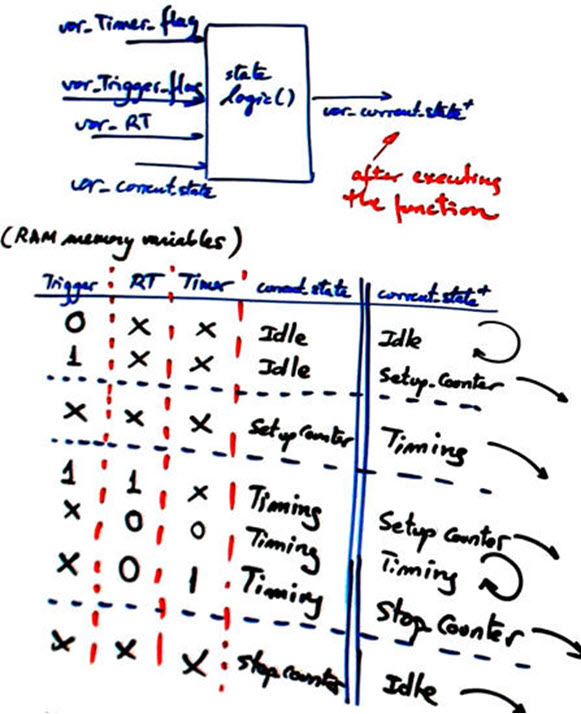 var_Timer_flag
var_Trigger_flag
var_RT
var_current.state
state
logic()
var_current.state+
after executing
the function
(RAM memory variables)
Trigger RT Timer current.state current.state+
0 x x Idle Idle
1 x x Idle Setup_Counter
x x x Setup Counter Timing
1 1 x Timing Setup Counter
x 0 0 Timing Timing
x 0 1 Timing Stop Counter
x x x Stop counter Idle